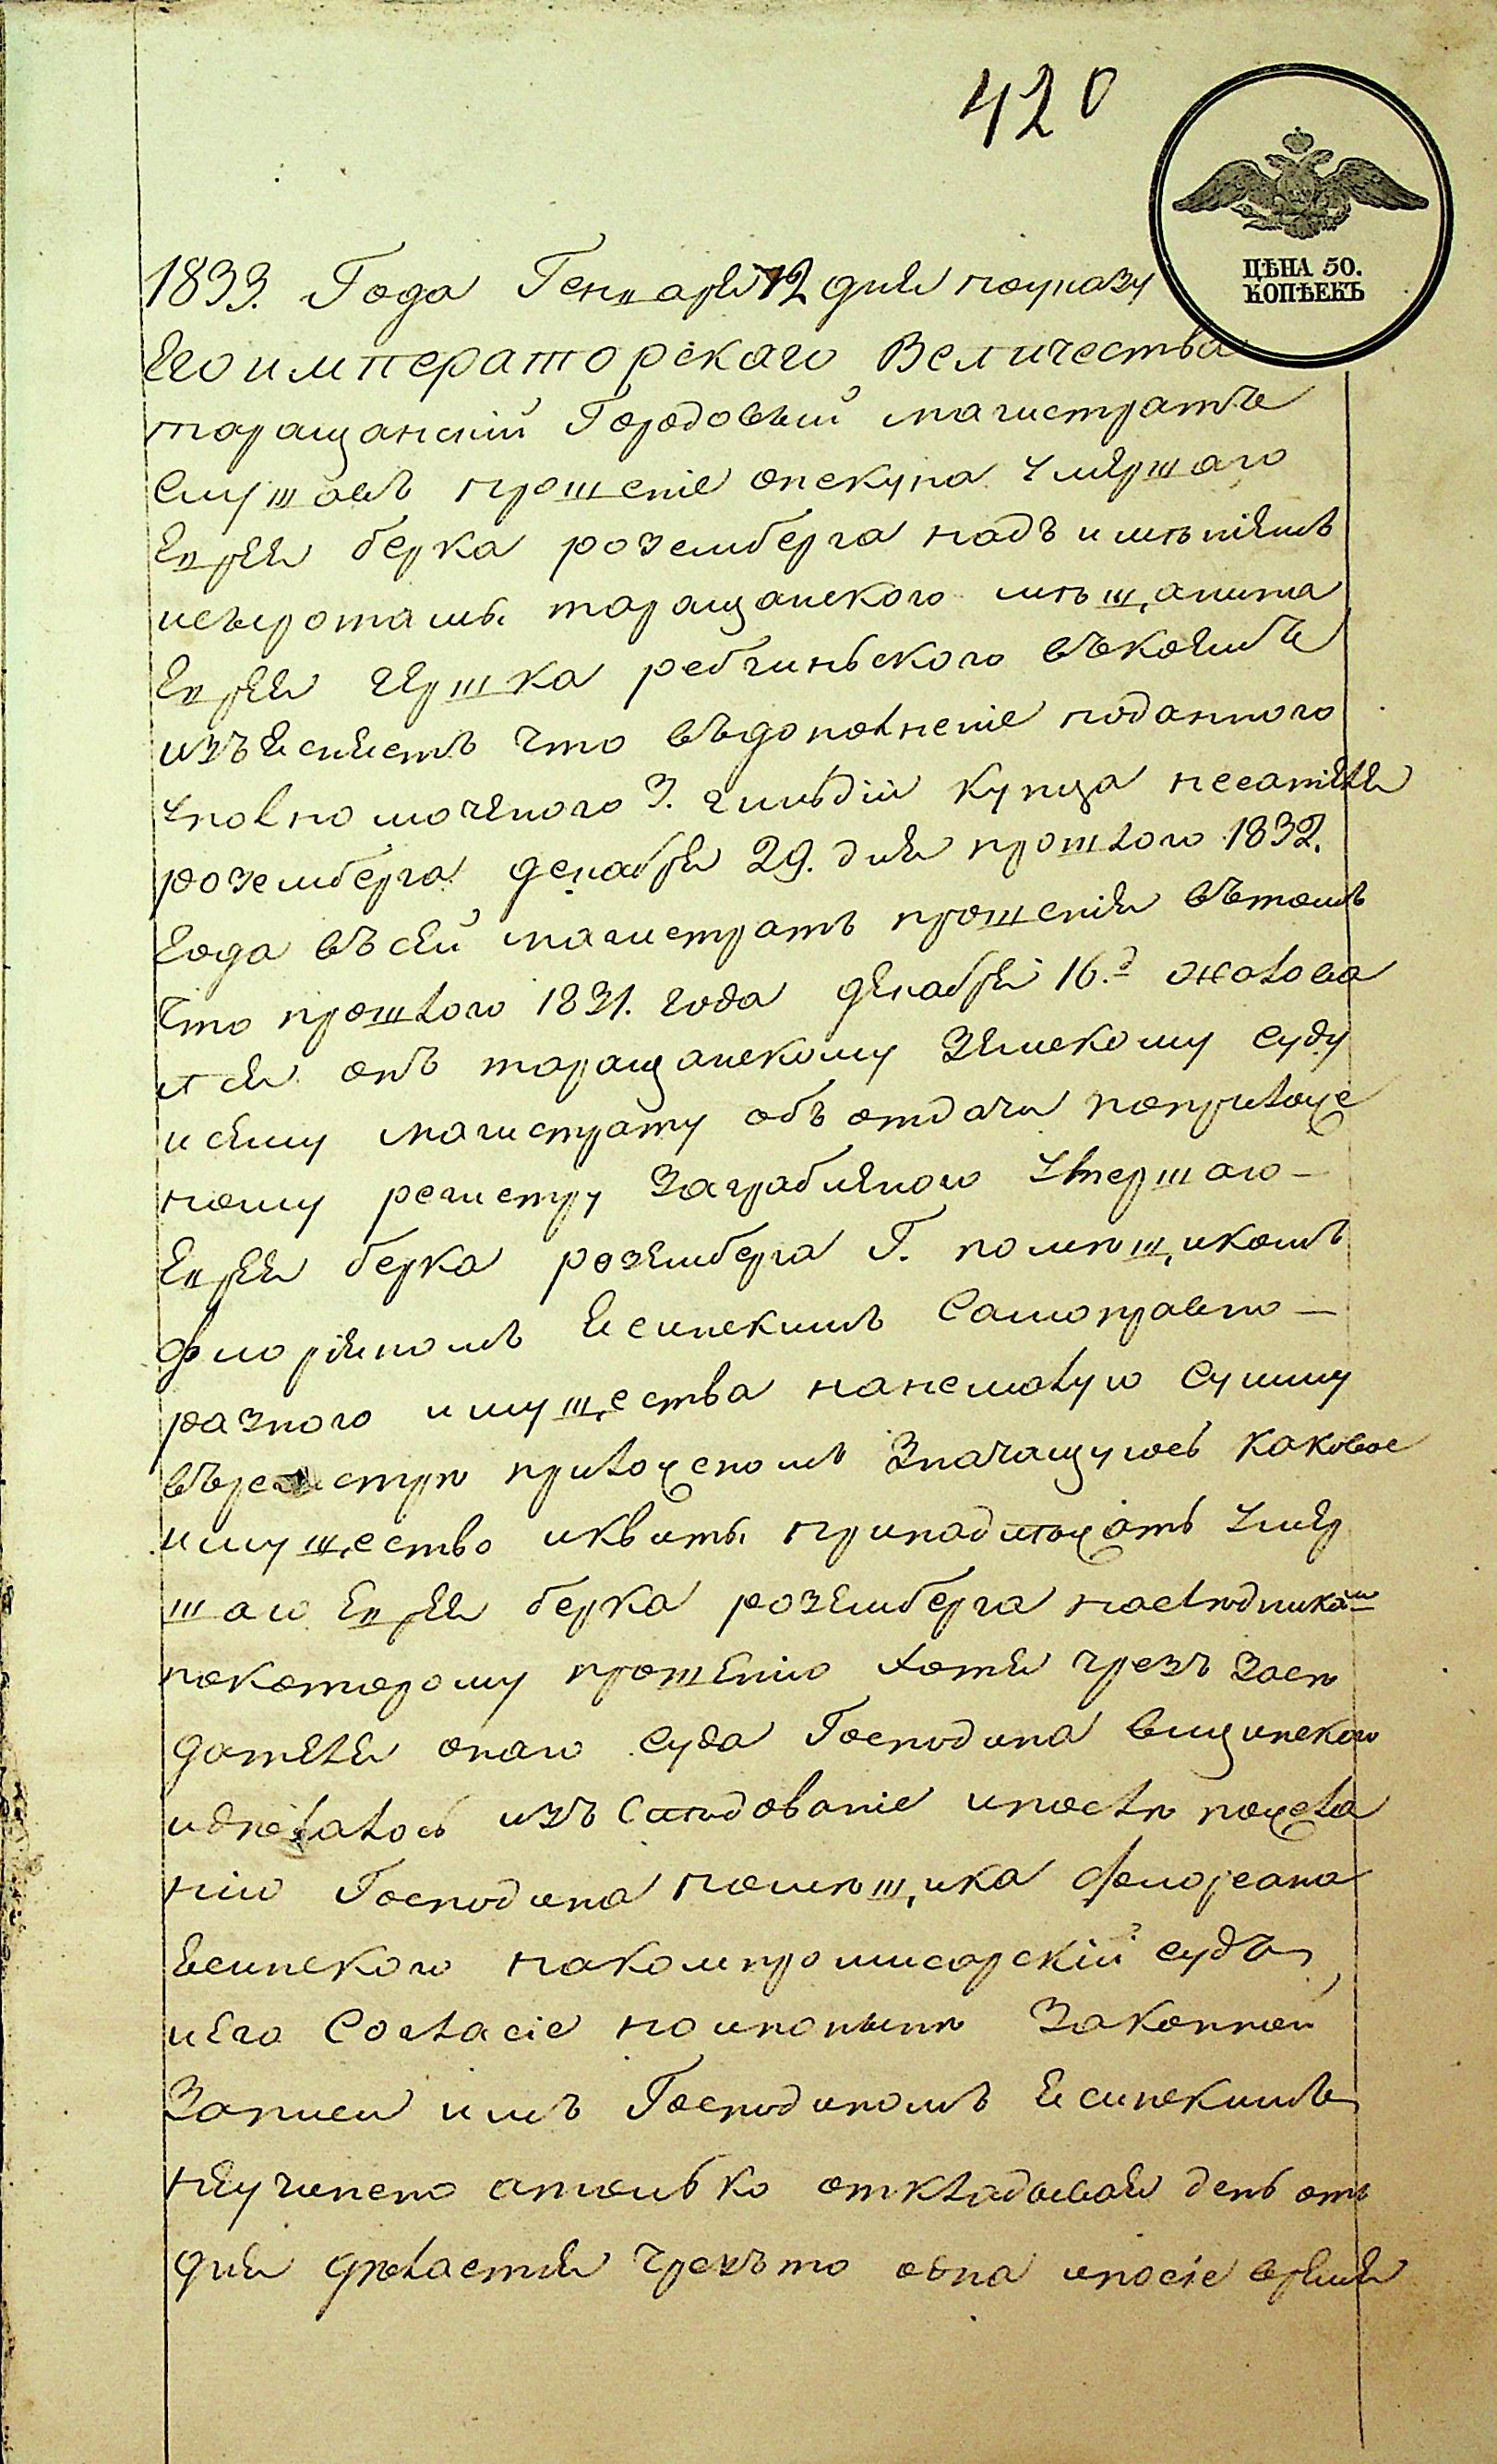 420
ЦѢНА 50.
КОПѢЕКЪ
1833. Года Генваря 12 дня поуказу
Его императорскаго Величества
таращанскій Городовый магистратъ
Слушавъ прошеніе опекуна умершаго
Еврея берка роземберга надъ имѣніемъ
исыротамы таращанского мѣщанина
Еврея гершка ребчиньского въкоемъ
изъясняетъ что въдополненіе поданного
уполномоченого 3. гильдіи купца
роземберга декабря 29. дня прошлого 1832.
года въсей магистратъ прошенія вътомъ
что прошлого 1831. года декабря 16.д жалова
лся онъ таращанскому земскому суду
исему магистрату объ отдачи поприложе
ному регистру заграбленого умершаго
Еврея берка роземберга Г. помѣщикомъ
Флоріяномъ Ясинскимъ Самоправно
разного имущества нанемалую Сумму
върегистрѣ приложеномъ Значащуюсь каковое
имущество иквиты принадлежатъ умер
шаго Еврея берка роземберга наслѣдникам
покоторому прошенію хотя чрезъ засѣ
дателя онаго Суда Господина вищинского
идѣлалось изъслѣдованіе ипослѣ пожела
нію Господина помѣщика флорeана
Ясинского накомпромисарскій судъ
иего Согласіе ноипонынѣ Законной
Записи имъ Господиномъ Ясинскимъ
неучинено атолько откладывая день отъ
дня дѣлается чрезъто она ипосіе время